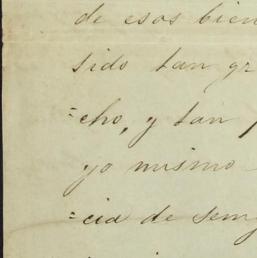 de esos bien
sido tan gr
=cho, y tan
yo mismo
=cia de sem